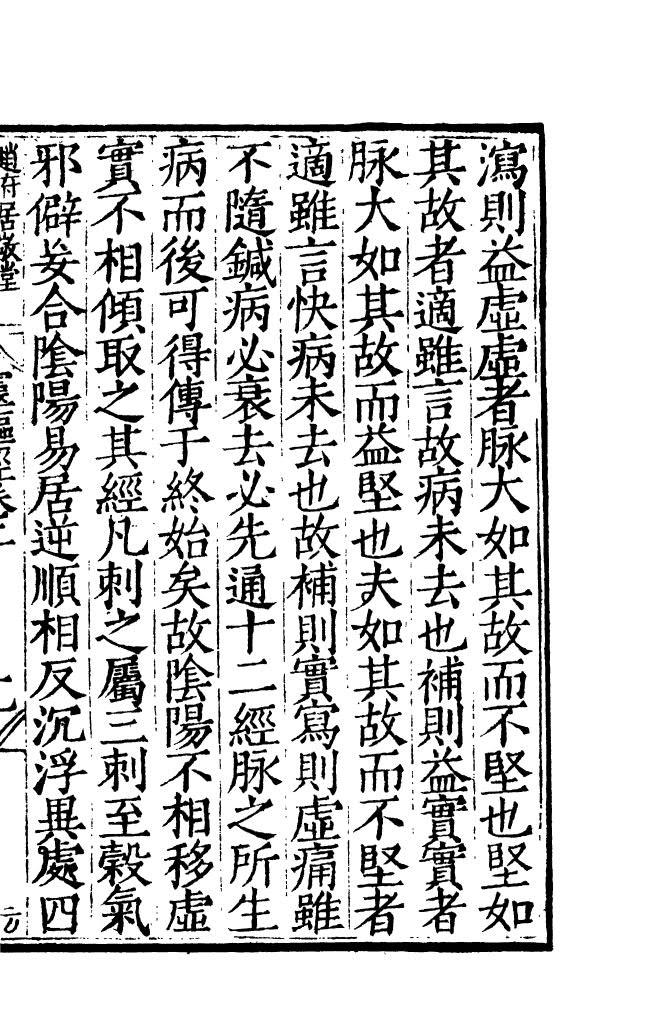 瀉則益虛虛者脉大如其故而不堅也堅如
其故者適雖言故病未去也補則益實實者
脉大如其故而益堅也夫如其故而不堅者
適雖言快病未去也故補則實寫則虛痛雖
不隨鍼病必衰去必先通十二經脉之所生
病而後可得傳于終始矣故陰陽不相移虛
實不相傾取之其經凡刺之屬三刺至穀氣
邪僻妄合陰陽易居逆順相反沉浮異處四
趙府居敬堂